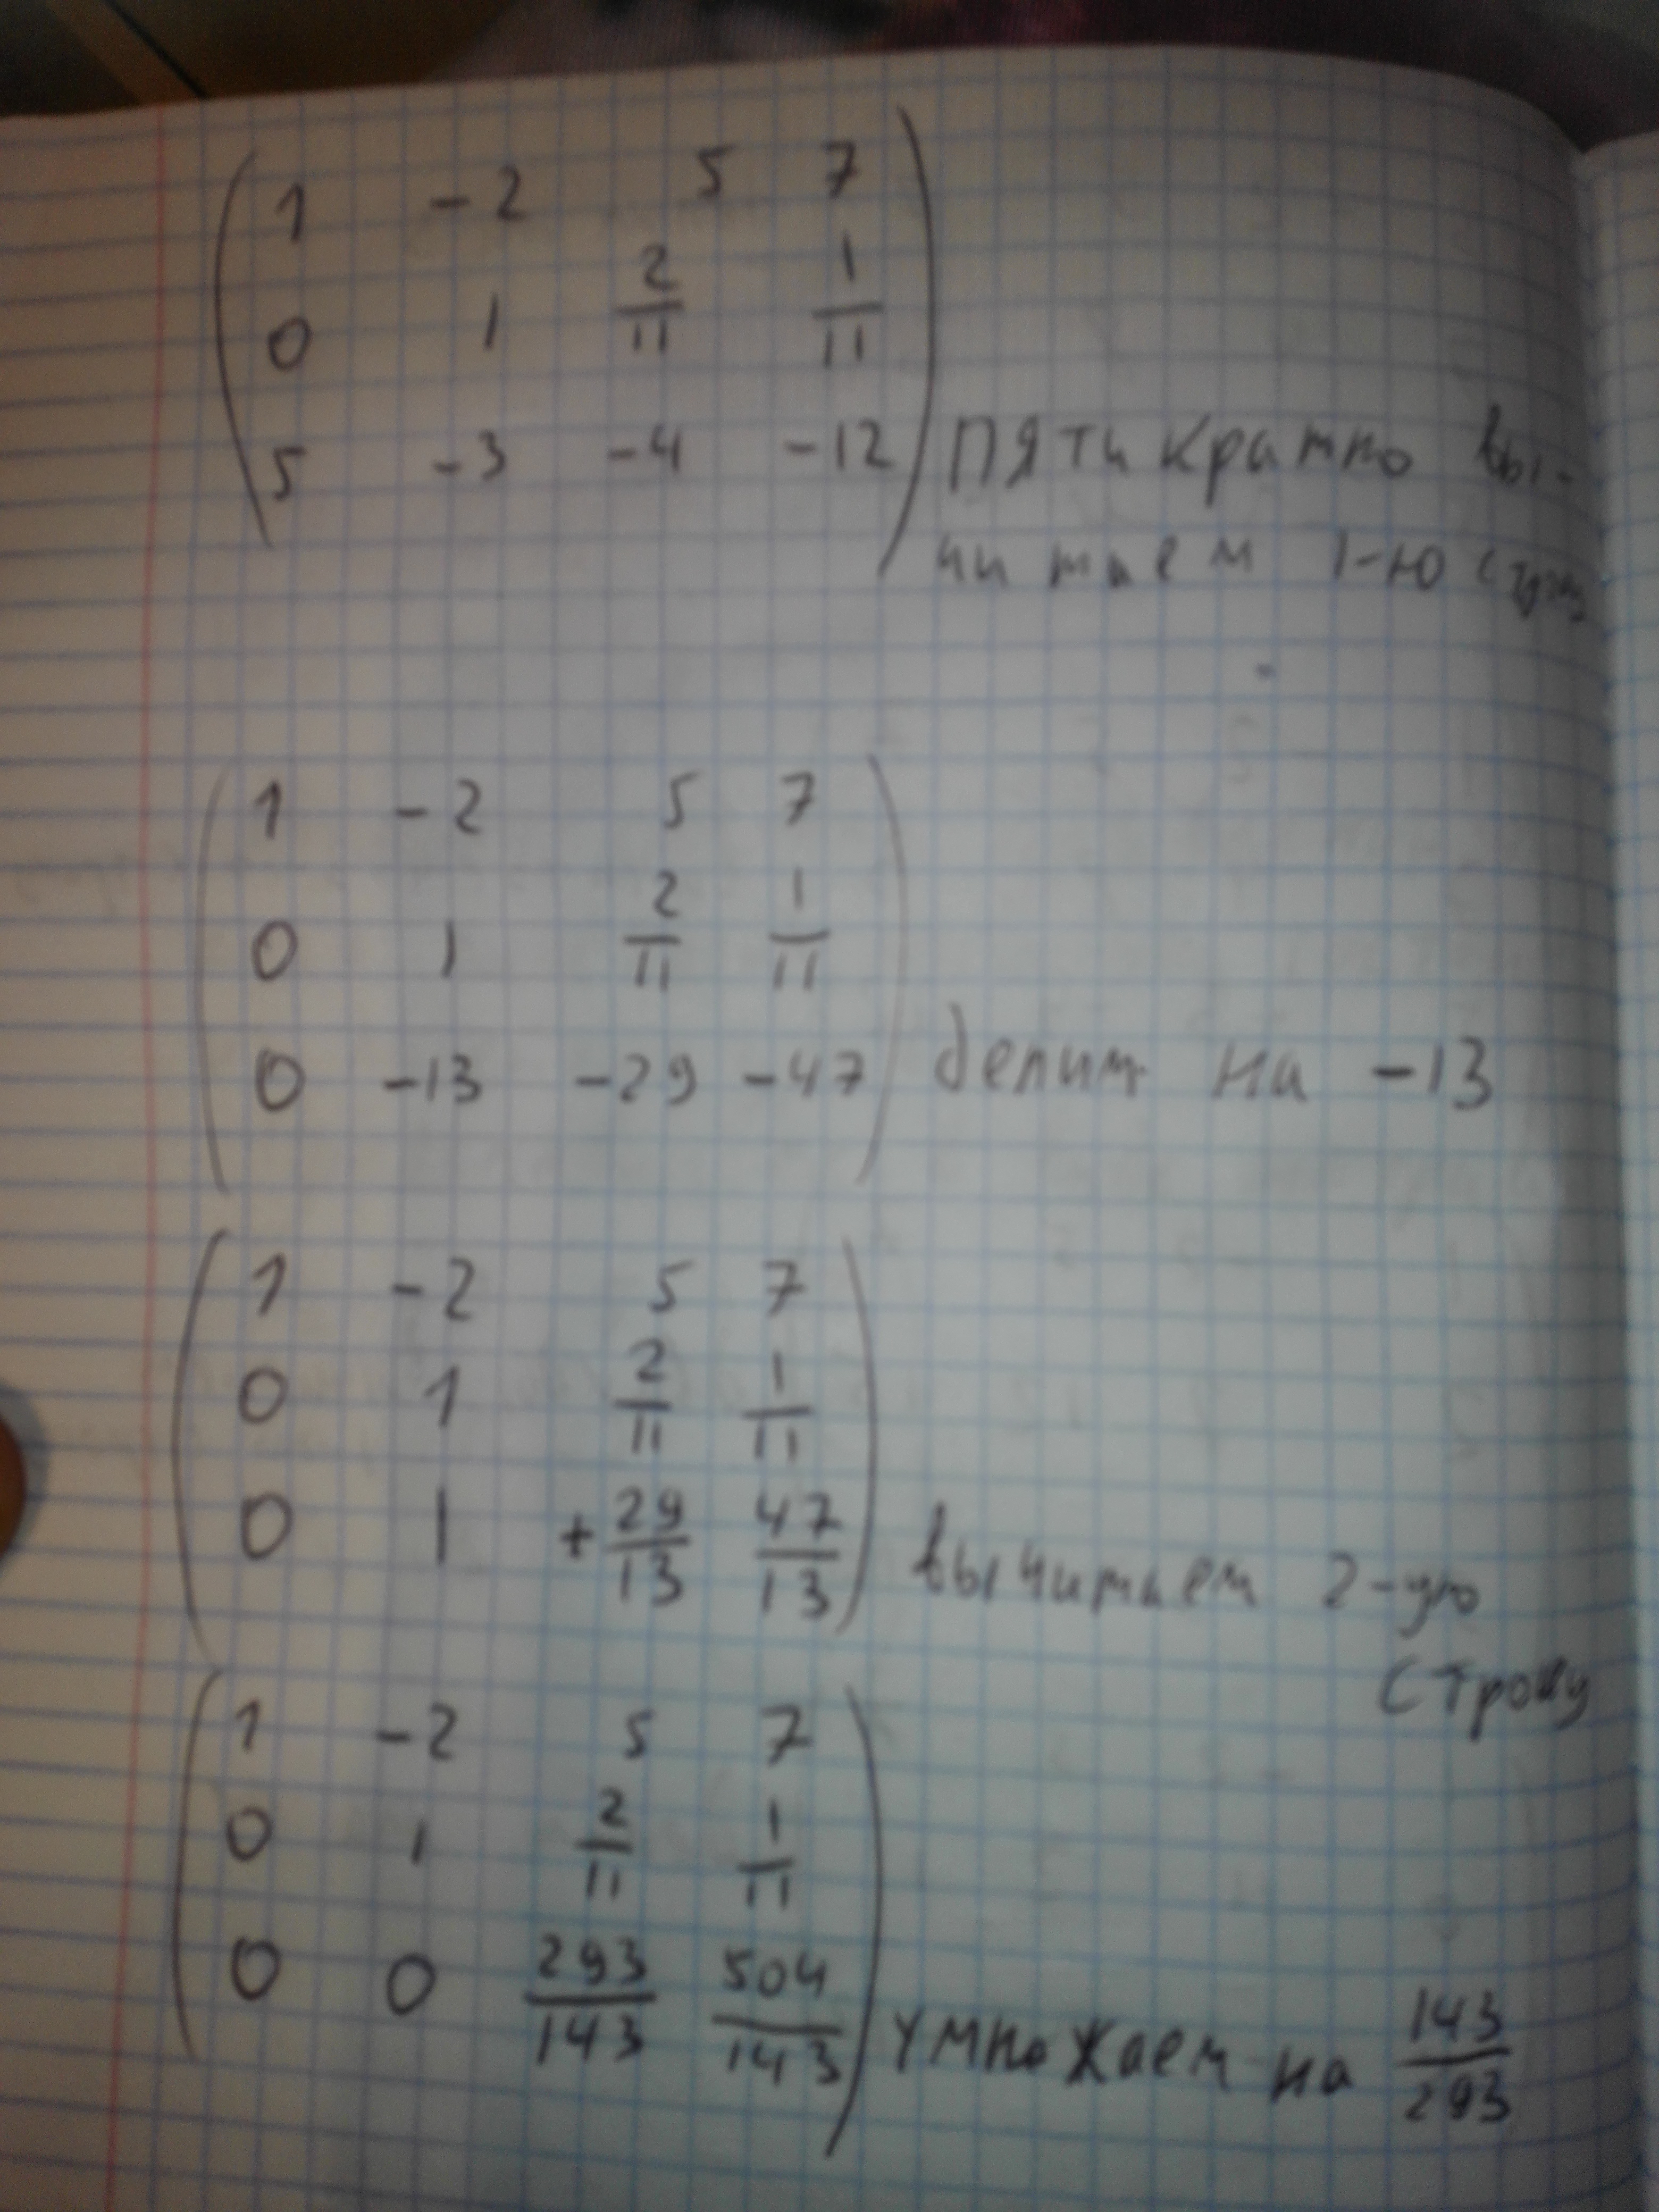 1 -2 5 7
0 1 2/11 1/11
5 -3 -4 -12 пятикратно вы-
читаем 1-ю
1 -2 5 7
0 1 2/11 1/11
0 -13 -29 -47 делим на -13
1 -2 5 7
0 1 2/11 1/11
0 1 +29/13 47/13 вычитаем 2-ую
строку
1 -2 5 7
0 1 2/11 1/11
0 0 293/143 504/143 умножаем на 143/293